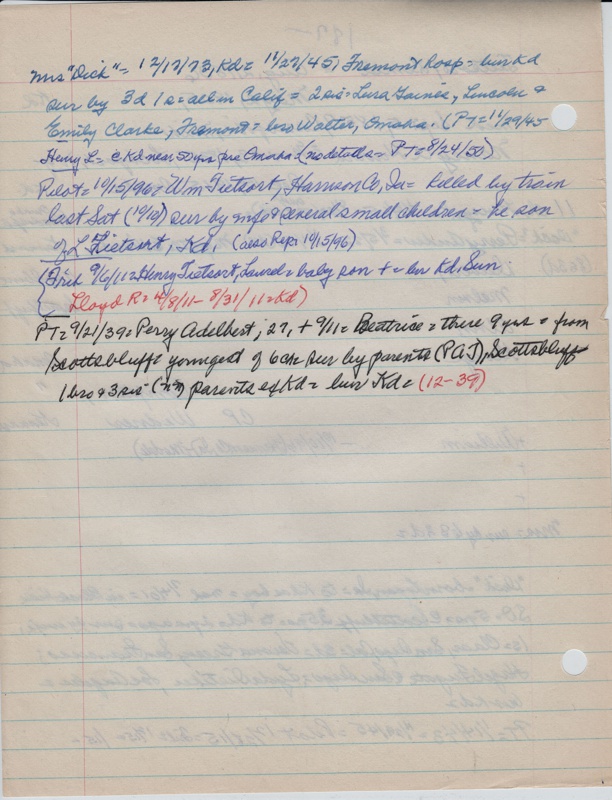 Mrs "Dick" = 12/17/73, Kd = 11/27/45, Fremont Hosp = bur Kd
sur by 3d 1s = all in Calif = 2 sis = Lura Gaines, Lincoln &
Emily Clarke, Fremont = bro Walter, Omaha. (PT = 11/29/45
Henry L = C Kd near 50 yrs pre Omaha = (no details = PT = 8/24/50)
Pilot = 10/15/96 = Wm Tietsort, Harrison Co, Ia = killed by train
last Sat (10/10) sur by wife & several small children = he son
of L Tietsort, Kd. (also Rep = 10/15/96)
Frid 9/6/11 = Henry Tietsort, Laurel = baby son + = bur Kd. Sun.
Lloyd R = 4/8/11 - 8/31/11 = Kd)
PT = 9/21/39 = Perry Adelbert, 27, + 9/11 = Beatrice = there 9 yrs = from
Scottsbluff = youngest of 6 ch = sur by parents (PAJ), Scottsbluff
1 bro & 3 sis - parents ex Kd = bur Kd = (12-39)